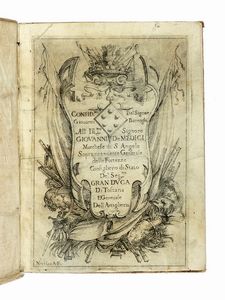 CONSID
Del Signore
Giovanni
All Ill.mo Signore
GIOVANNI DE MEDICI
Marchese di S. Angelo
Sopraintendente Generale
delle Fortezze
Consigliero di Stato
Del Ser.mo
GRAN DVCA
Di Toscana
E Generale
Dell Artiglieria